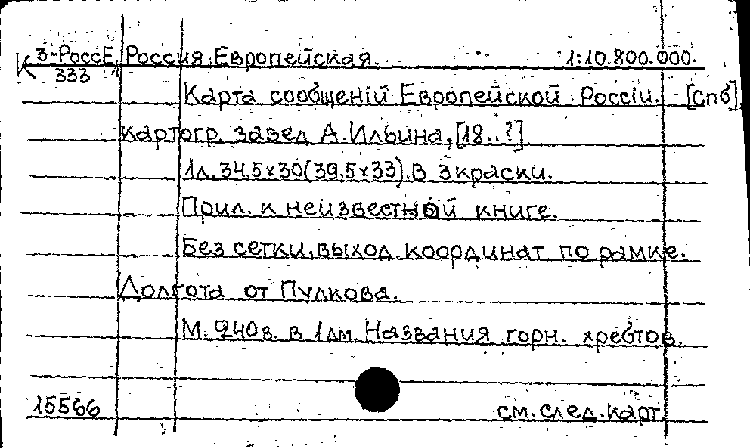 К 3-РоссЕ Россия Европейская 1:10.800.000.
333
Карта сообщеній Европейской Россіи. [Спб],
картогр. завед. А. Ильина, [18..?]
1л. 34,5х30(39,5х33). В 3 краски.
Прил. к неизвестной книге.
Без сетки, выход координат по рамке.
Долгота от Пулкова.
М. 240в. в 1дм. Названия горн. хребтов.
15566 см. след. карт.